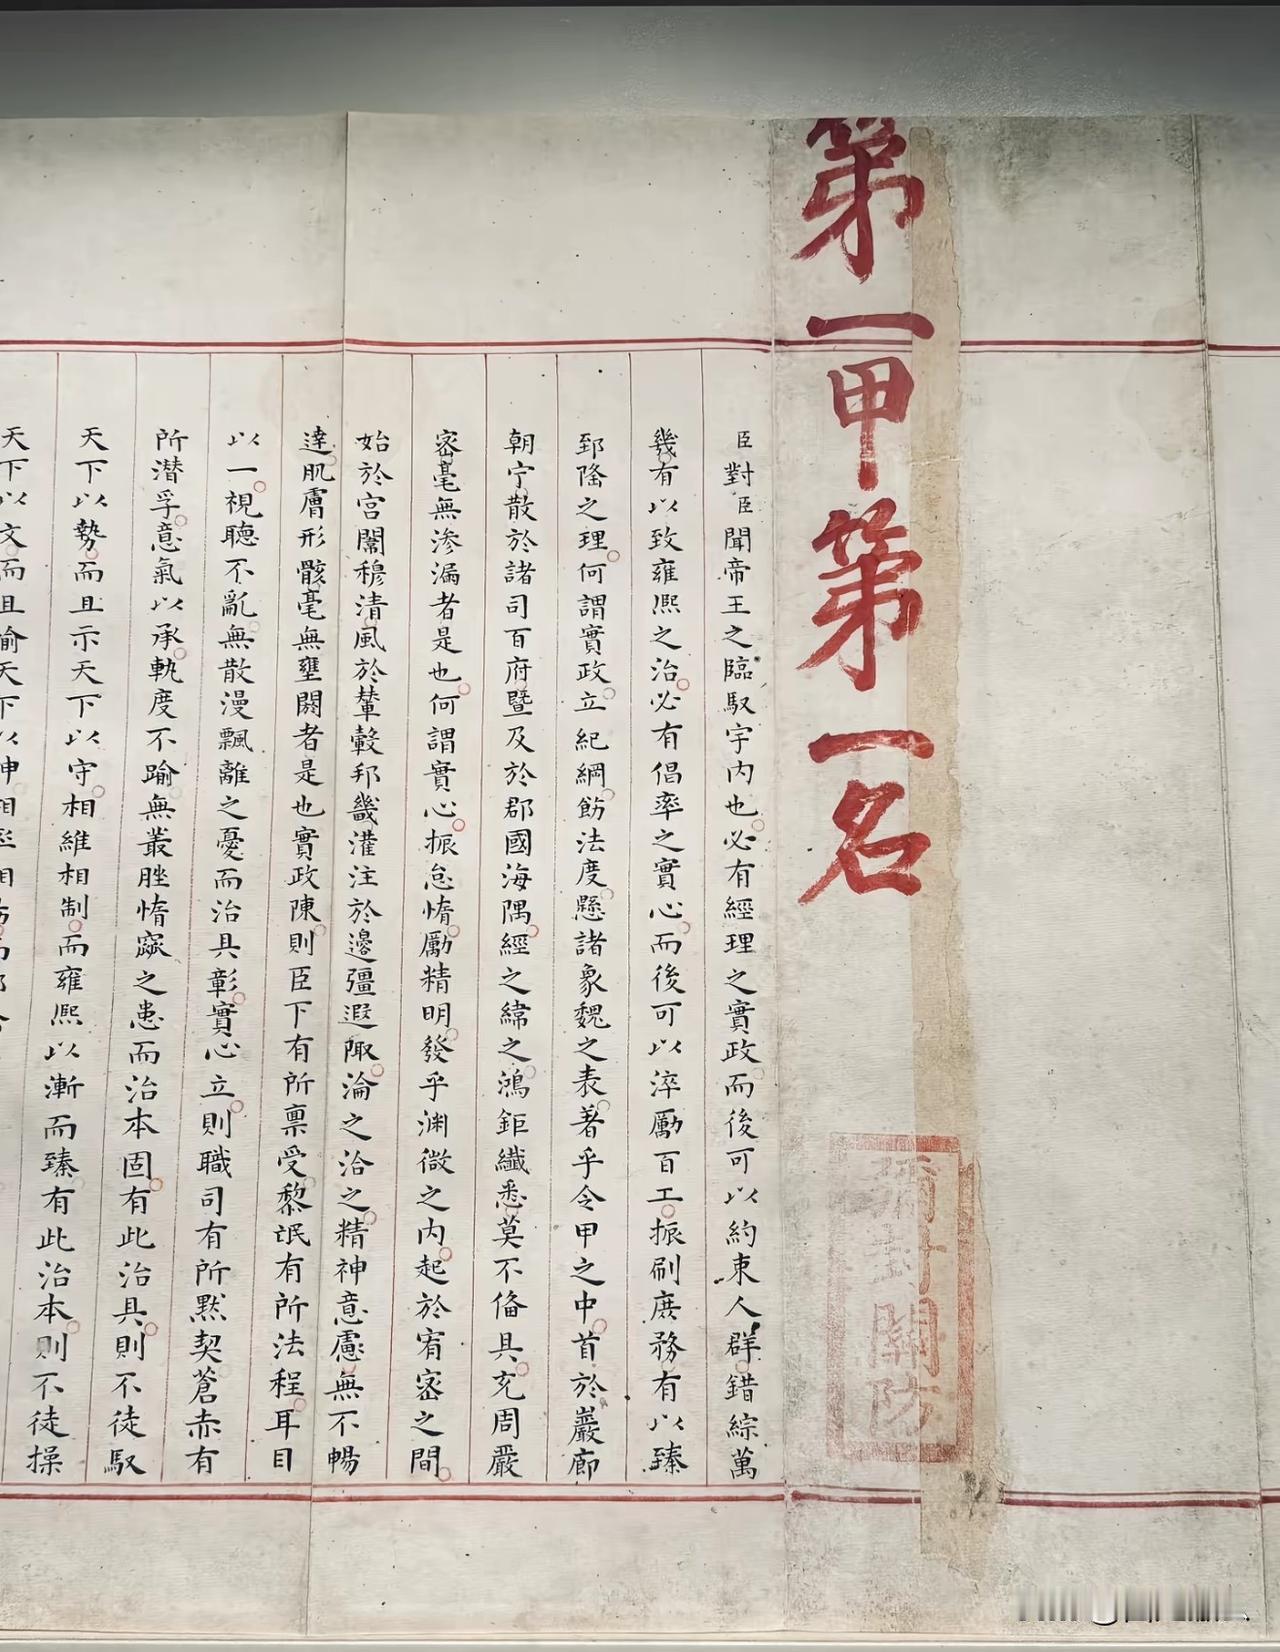 第一甲第一名
彌封關防
臣對臣聞帝王之臨馭宇内也必有經理之實政而後可以約束人群錯綜萬
幾有以致雍熙之治必有倡率之實心而後可以淬勵百工振刷庶務有以臻
郅隆之理何謂實政立紀綱飭法度懸諸象魏之表著乎令甲之中首於巖廊
朝宁散於諸司百府暨及於郡國海隅經之緯之鴻鉅纖悉莫不俻具充周嚴
密毫無渗漏者是也何謂實心振怠惰勵精明發乎渊微之内起於宥密之間
始於宫闈穆清風於輦轂邦畿灌注於邊疆遐陬淪之洽之精神意慮無不暢
達肌膚形骸毫無壅閼者是也實政陳則臣下有所禀受黎氓有所法程耳目
以一視聽不亂無散漫飄離之憂而治具彰實心立則職司有所默契蒼赤有
所潛孚意氣以承軌度不踰無叢脞惰窳之患而治本固有此治具則不徒馭
天下以勢而且示天下以守相維相制而雍熙以漸而臻有此治本則不徒操
天下以文而且喻天下以神相